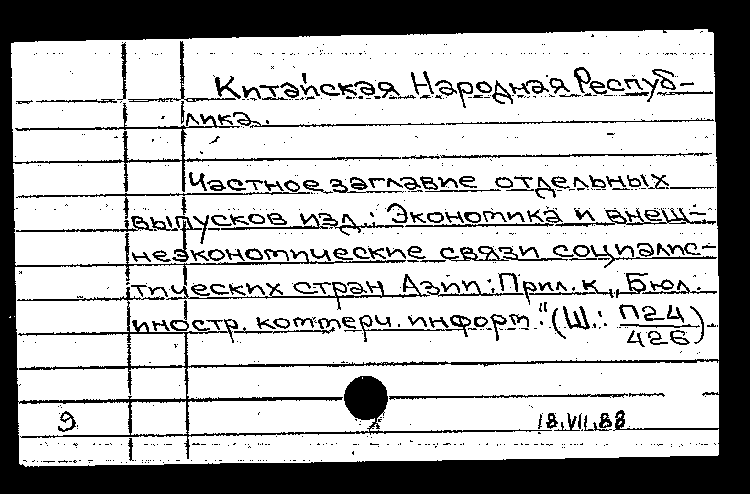 Китайская Народная Респуб-
лика.
Частное заглавие отдельных
выпусков изд.: Экономика и внеш-
неэкономические связи социалис-
тических стран Азии: Прил. к „Бюл.
иностр. коммерч. информ." (Ш.: П24/426)
9 18.VII.88